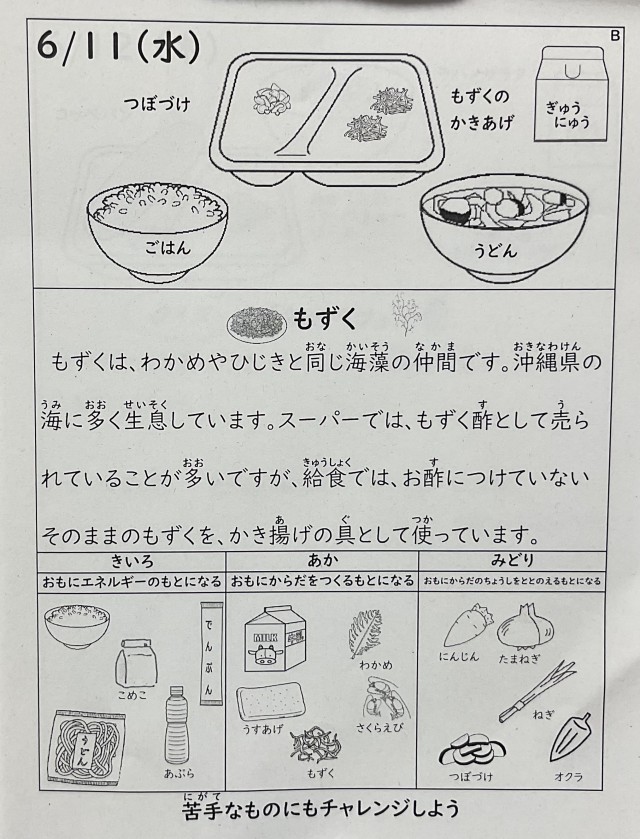 6/11(水)
B
つぼづけ
もずくの
かきあげ
ぎゅう
にゅう
ごはん
うどん
もずく
もずくは、わかめやひじきと同じ海藻の仲間です。沖縄県の
おな かいそう なかま おきなわけん
海に多く生息しています。スーパーでは、もずく酢として売ら
うみ おお せいそく す う
れていることが多いですが、給食では、お酢につけていない
おお きゅうしょく す
そのままのもずくを、かき揚げの具として使っています。
あ ぐ つか
きいろ
あか
みどり
おもにエネルギーのもとになる
おもにからだをつくるもとになる
おもにからだのちょうしをととのえるもとになる
でんぷん
こめこ
うどん
あぶら
MILK
わかめ
うすあげ
さくらえび
もずく
にんじん
たまねぎ
ねぎ
つぼづけ
オクラ
にがて
苦手なものにもチャレンジしよう